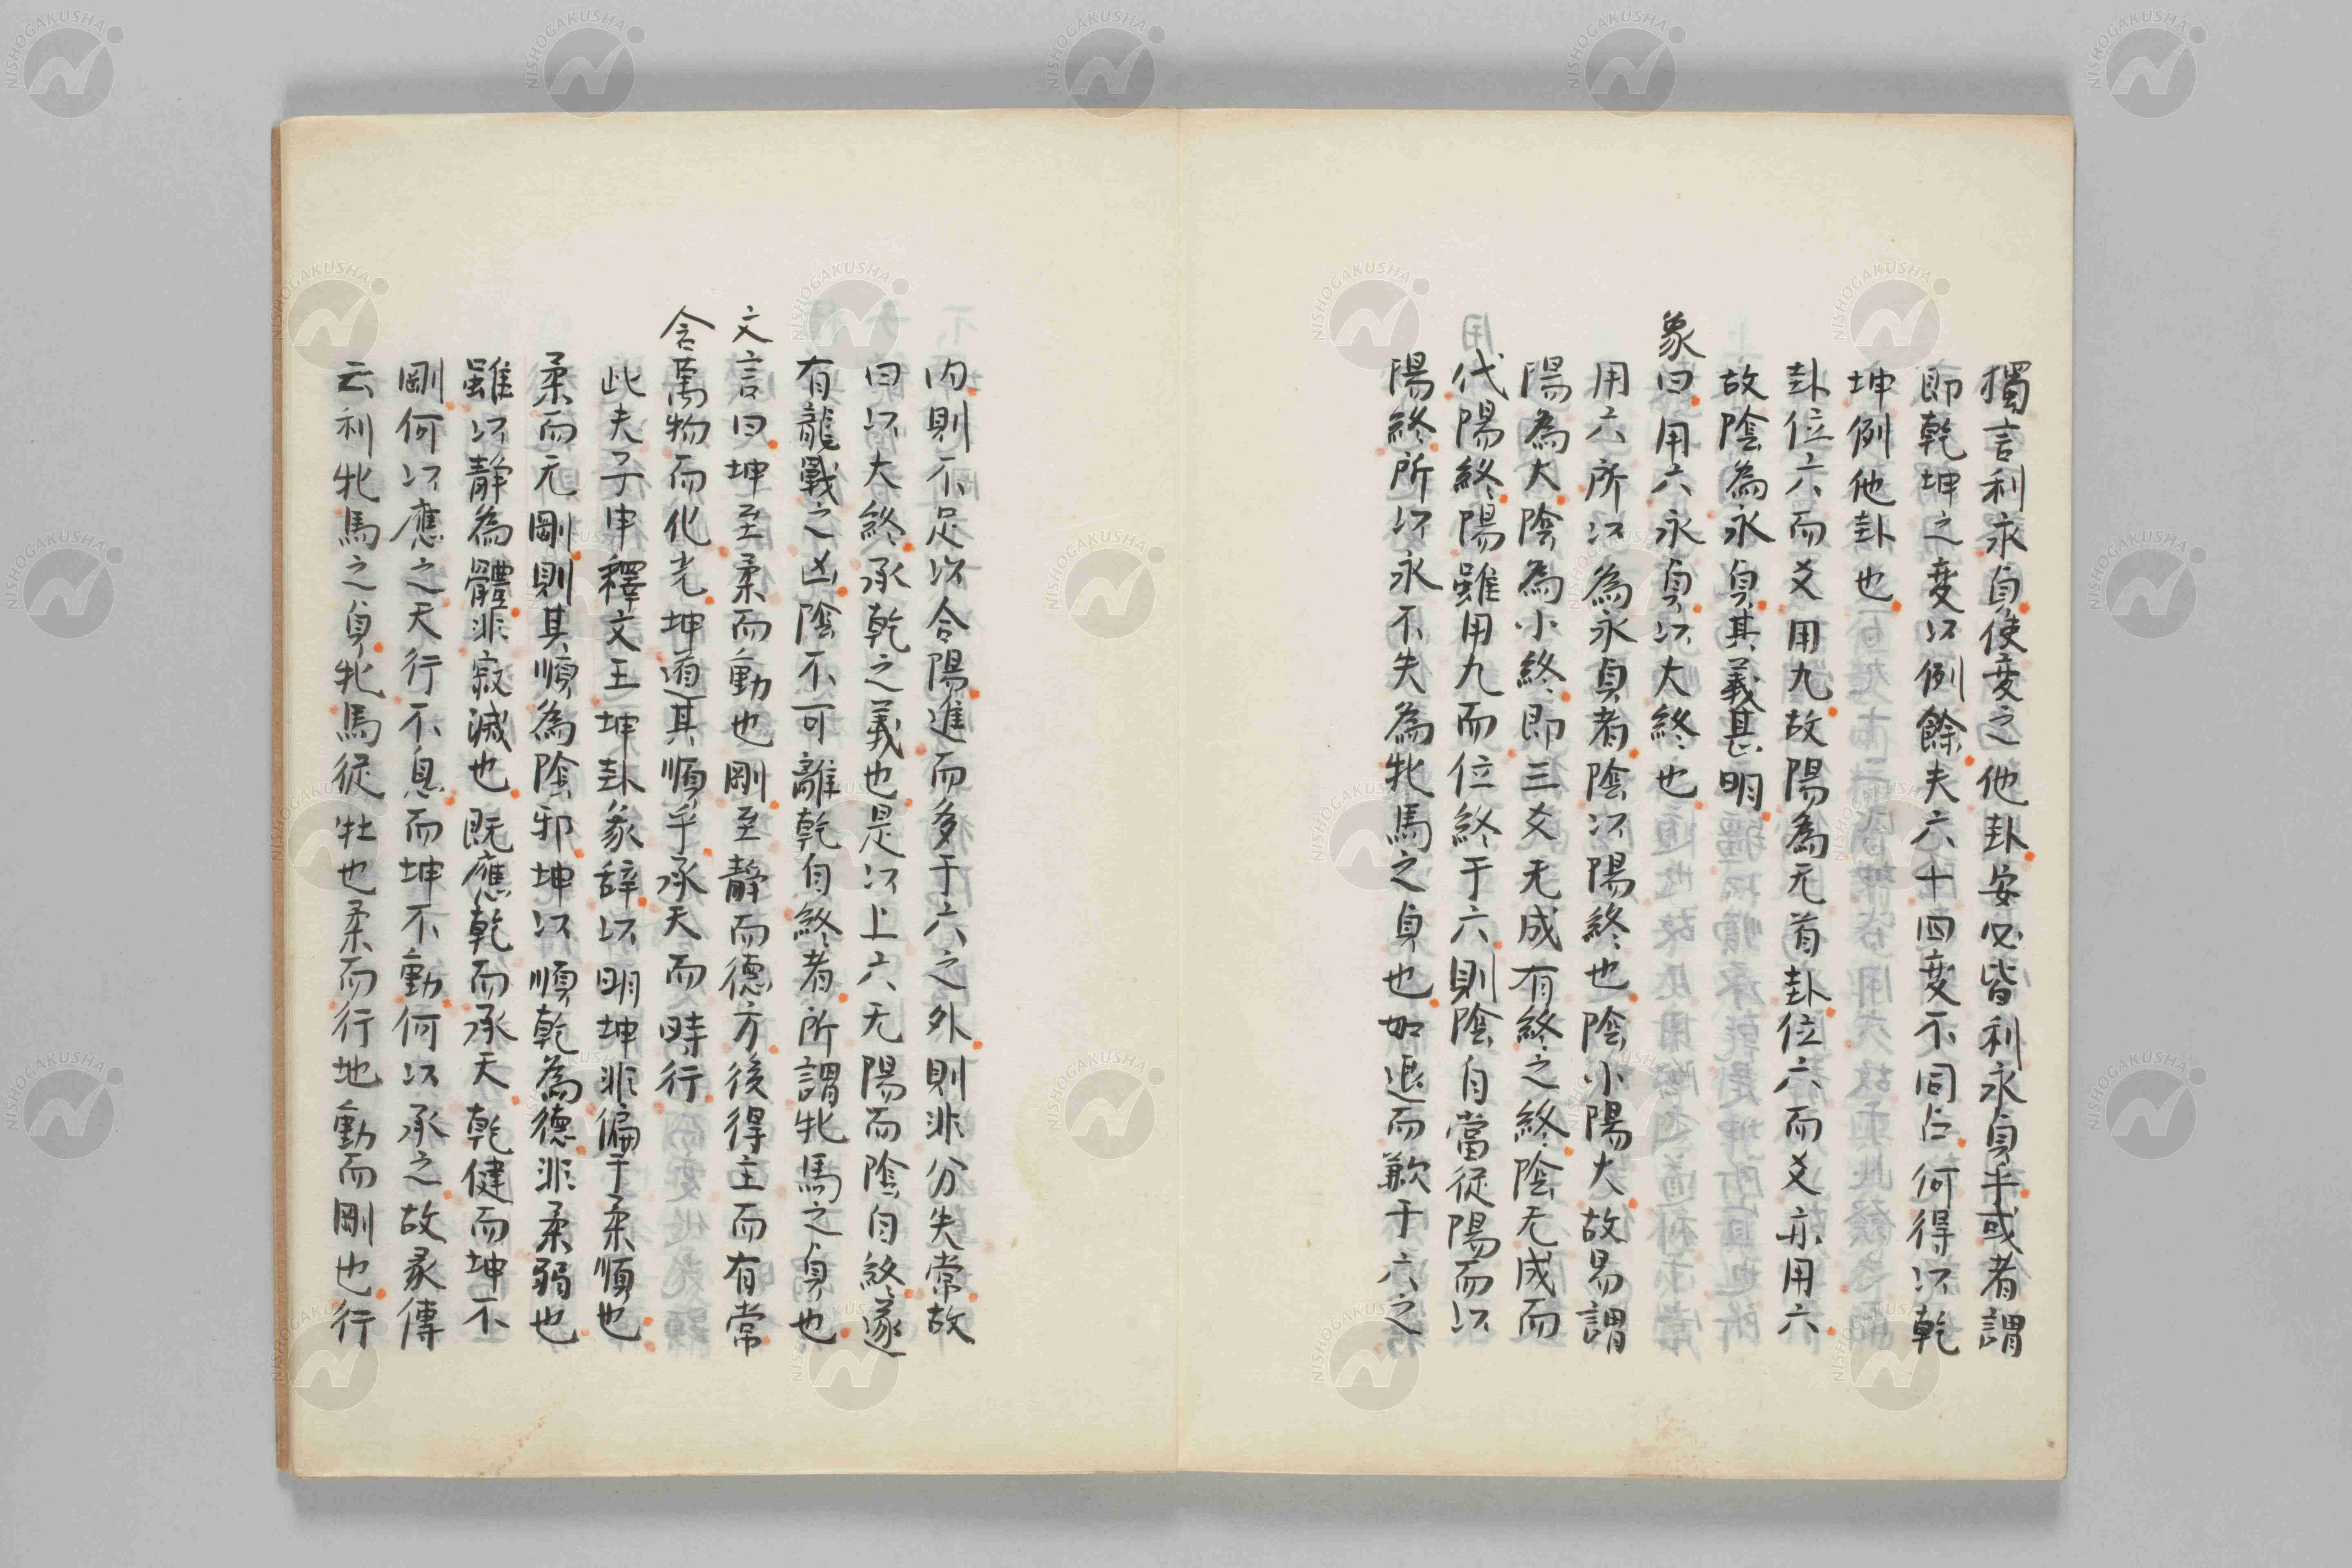 獨言利永貞使变之他卦安必皆利永貞乎或者謂
即乾坤之变以例餘夫六十四变不同占何得以乾
坤例他卦也
卦位六而爻用九故陽為无首卦位六而爻亦用六
故陰為永貞其義甚明
象曰用六永貞以大終也
用六所以為永貞者陰以陽終也陰小陽大故易謂
陽為大陰為小終即三爻无成有終之終陰无成而
代陽終陽雖用九而位終于六則陰自當從陽而以
陽終所以永不失為牝馬之貞也如退而歉于六之
内則不足以合陽進而多于六之外則非分失常故
曰以大終承乾之義也是以上六无陽而陰自終遂
有龍戰之凶陰不可離乾自終者所謂牝馬之貞也
文言曰坤至柔而動也剛至靜而德方後得主而有常
含萬物而化光坤道其順乎承天而時行
此夫子申釋文王坤卦彖辭以明坤非偏于柔順也
柔而无剛則其順為陰邪坤以順乾為德非柔弱也
雖以靜為體非寂滅也既應乾而承天乾健而坤不
剛何以應之天行不息而坤不動何以承之故彖傳
云利牝馬之貞牝馬從牡也柔而行地動而剛也行
NISHOGAKUSHA